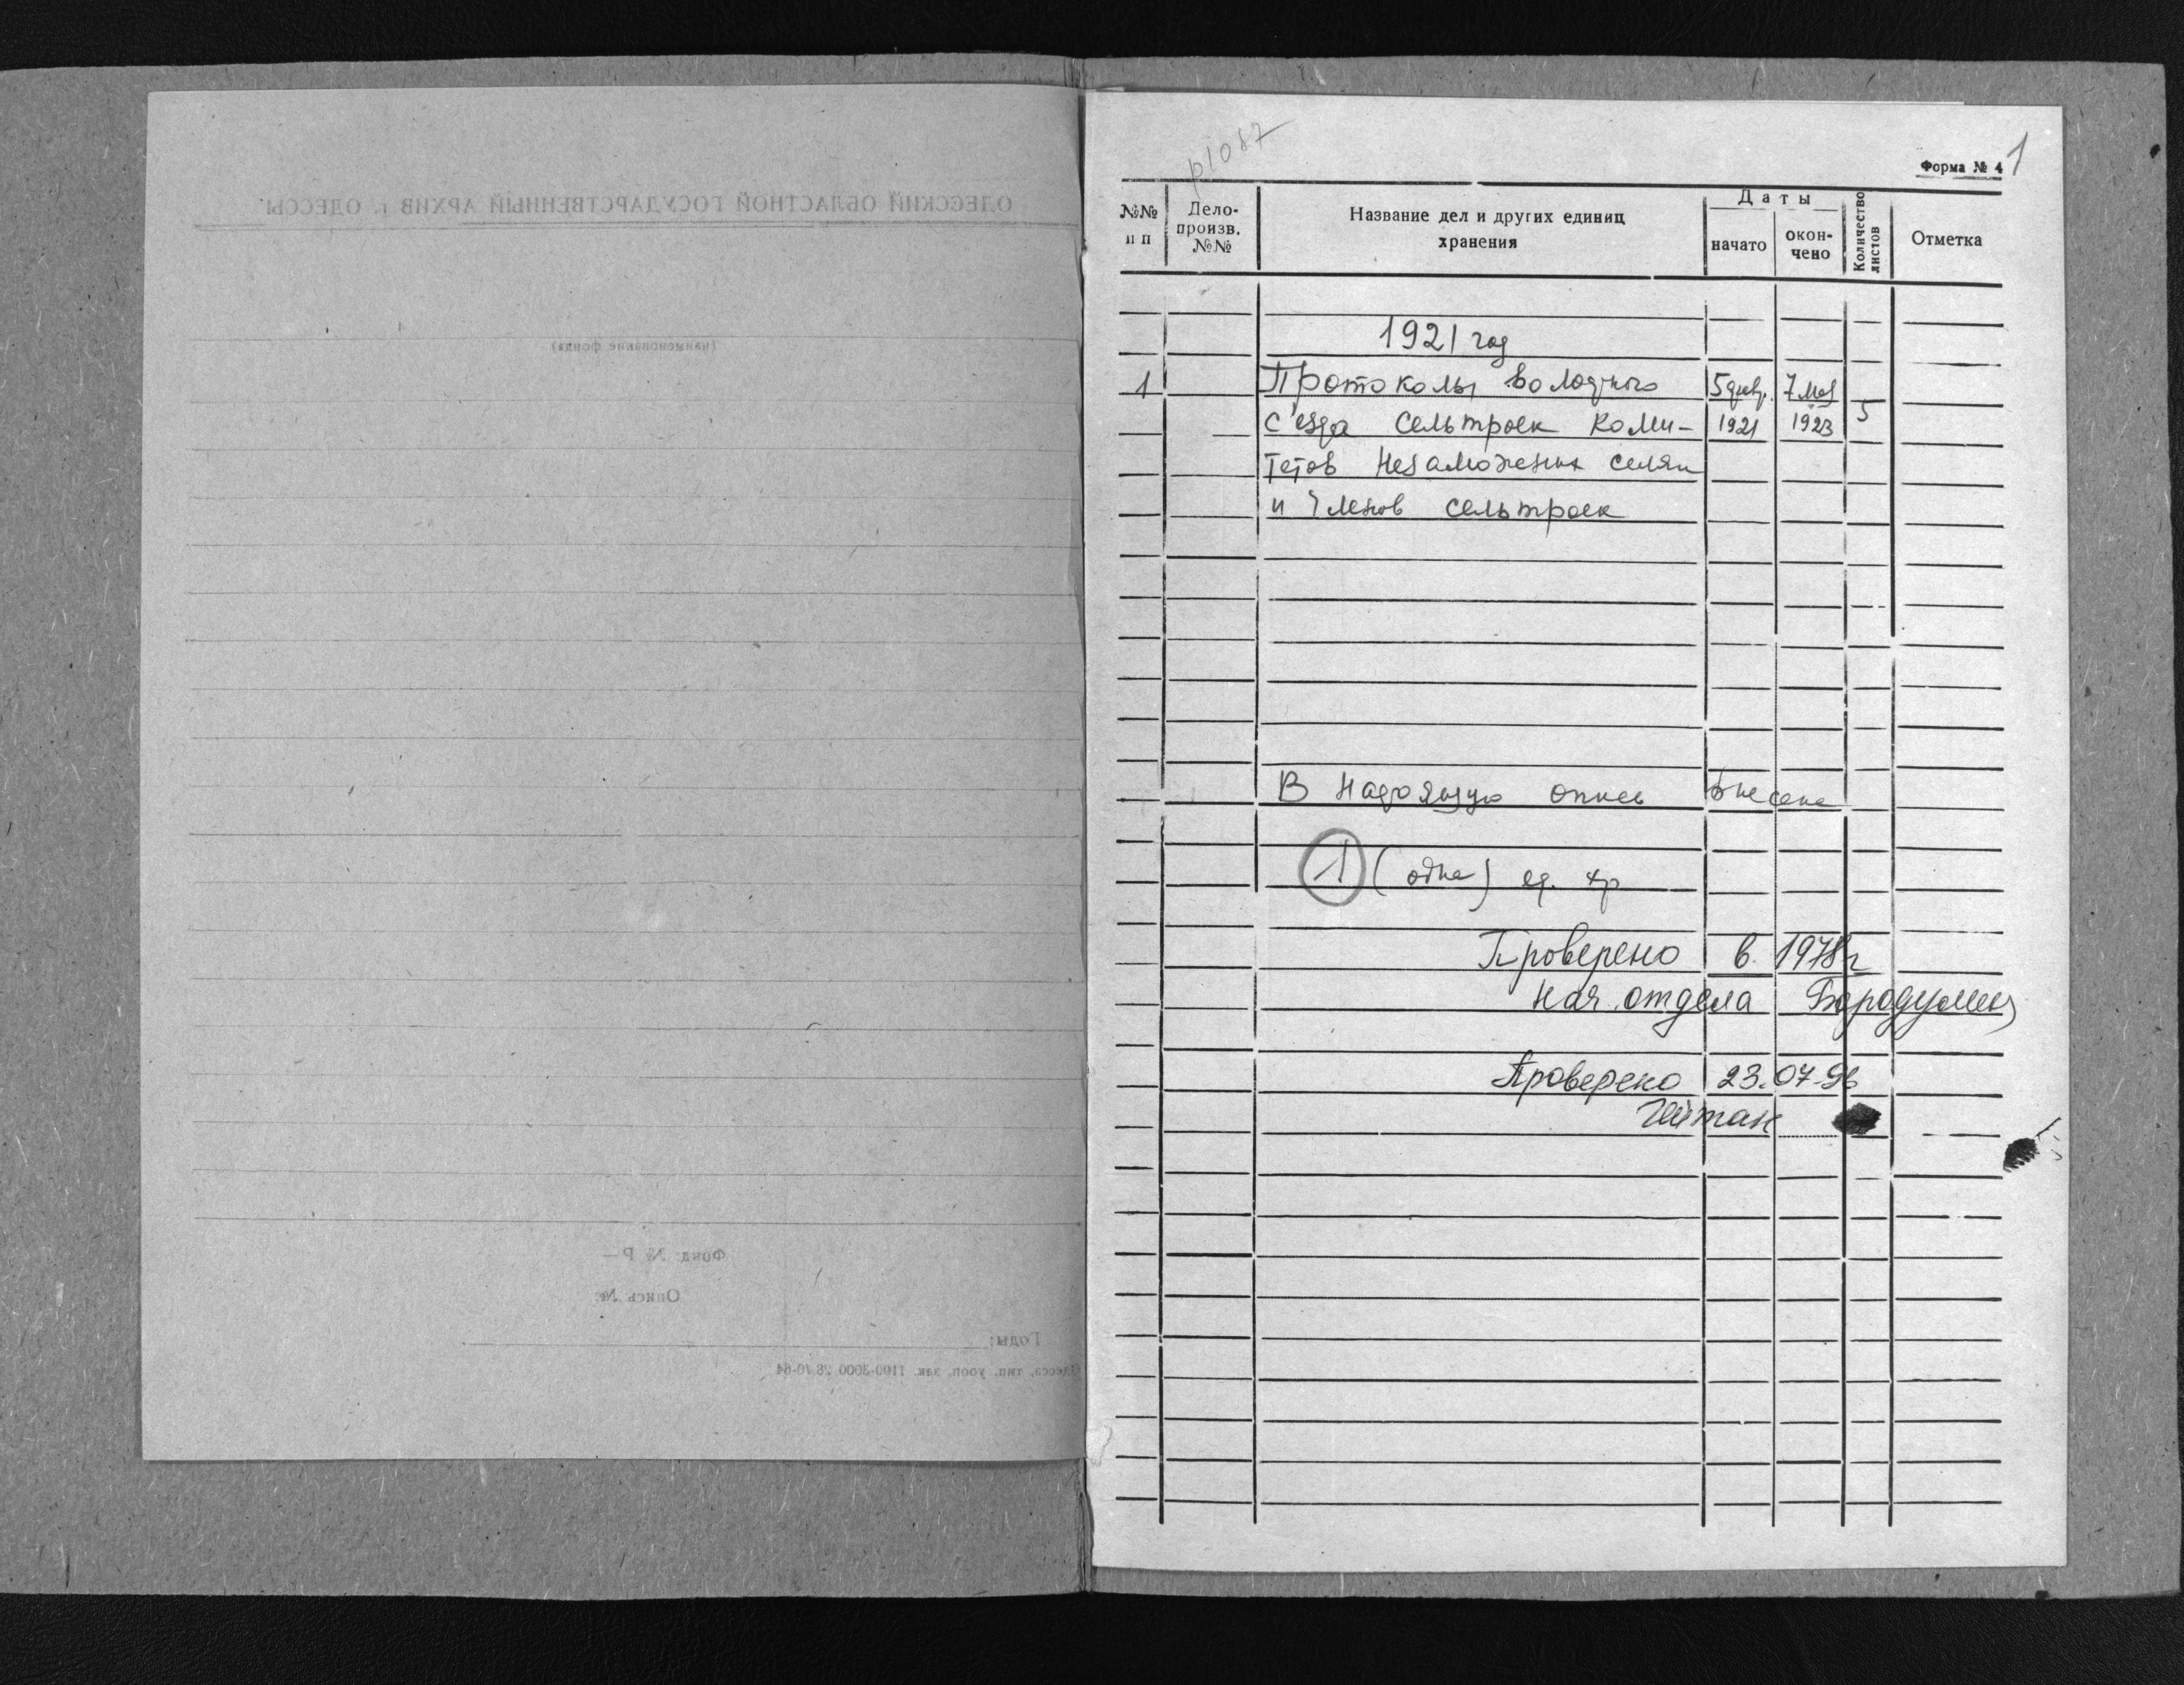 ОДЕССКИЙ ОБЛАСТНОЙ ГОСУДАРСТВЕННЫЙ АРХИВ г. ОДЕССЫ
(наименование фонда)
Фонд № Р —
Опись №
Годы:
Одесса, тип. уооп. зак. 1100-3000
р1087
1
Форма № 4
№№ п п
Дело-произв. №№
Название дел и других единиц хранения
Даты
начато
окон-чено
Количество листов
Отметка
1921 год
1 Протоколы волостного 5 февр. 7 мая
с'езда сельтроек коми- 1921 1923 5
тетов незаможних селян
и членов сельтроек
В настоящую опись внесена
1 (одна) ед. хр
Проверено в 1978 г
Нач. отдела
Проверено 23.07.96